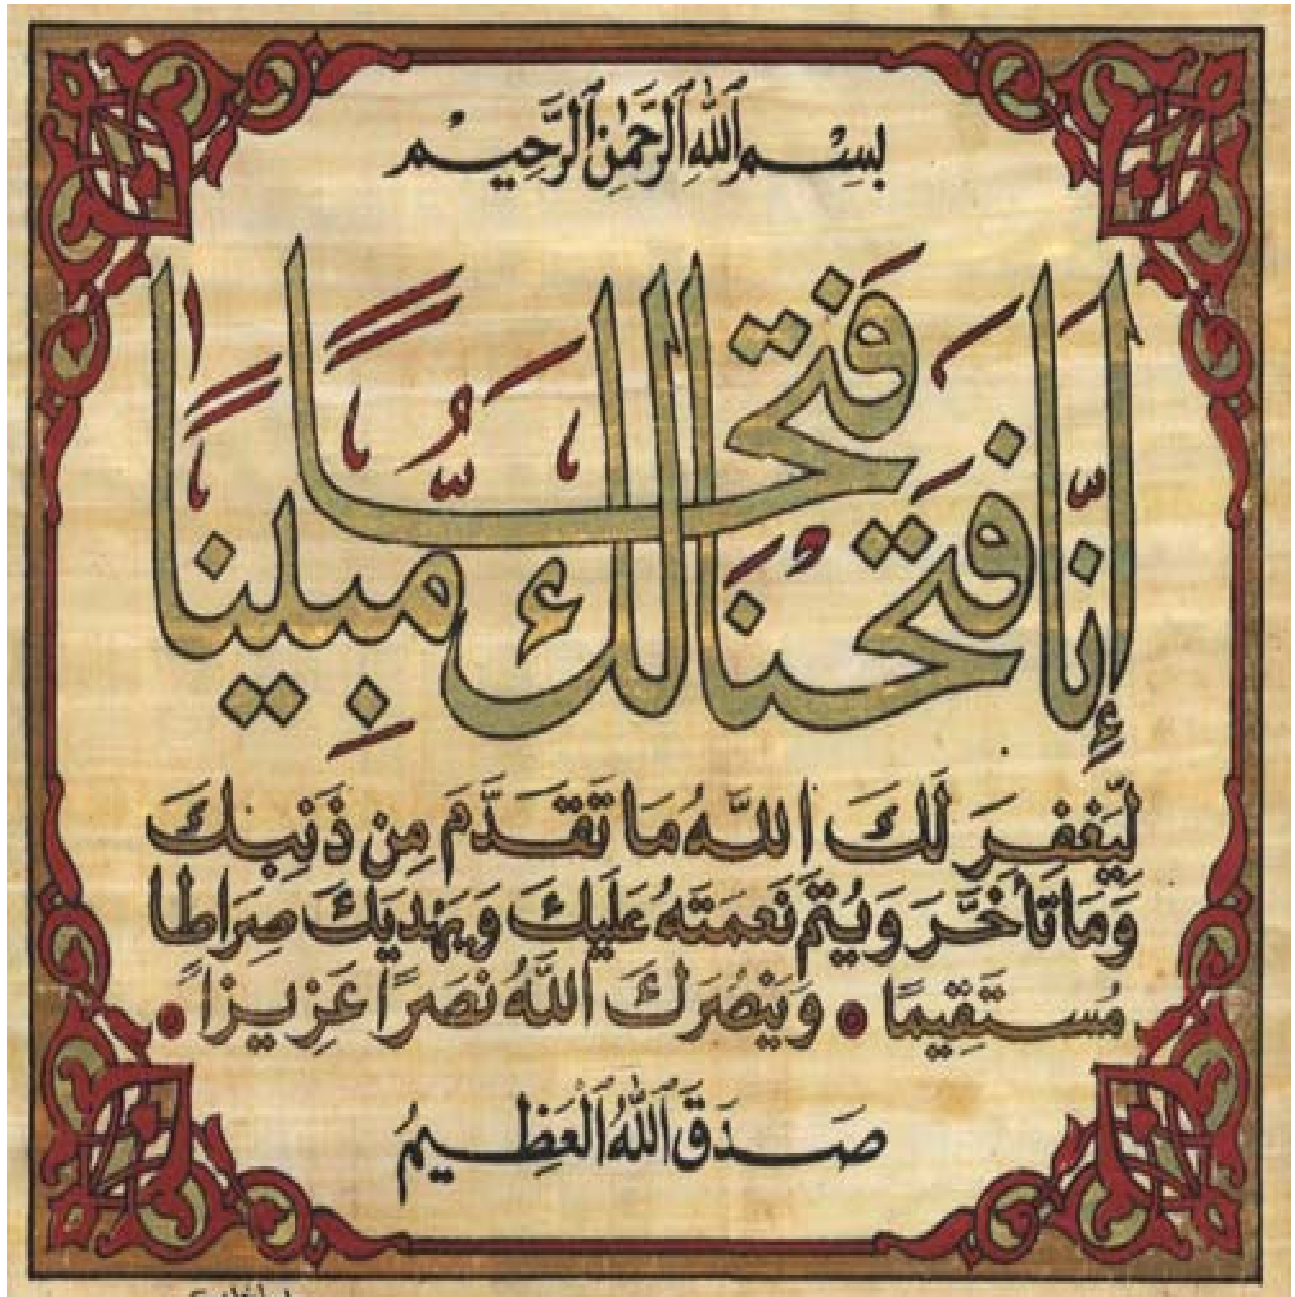 بِسْمِ ٱللَّهِ ٱلرَّحْمَٰنِ ٱلرَّحِيمِ
إِنَّا فَتَحْنَا لَكَ فَتْحًا مُّبِينًا
لِّيَغْفِرَ لَكَ اللَّهُ مَا تَقَدَّمَ مِن ذَنبِكَ
وَمَا تَأَخَّرَ وَيُتِمَّ نِعْمَتَهُ عَلَيْكَ وَيَهْدِيَكَ صِرَاطًا
مُّسْتَقِيمًا • وَيَنصُرَكَ اللَّهُ نَصْرًا عَزِيزًا •
صَدَقَ ٱللَّهُ ٱلْعَظِيمُ